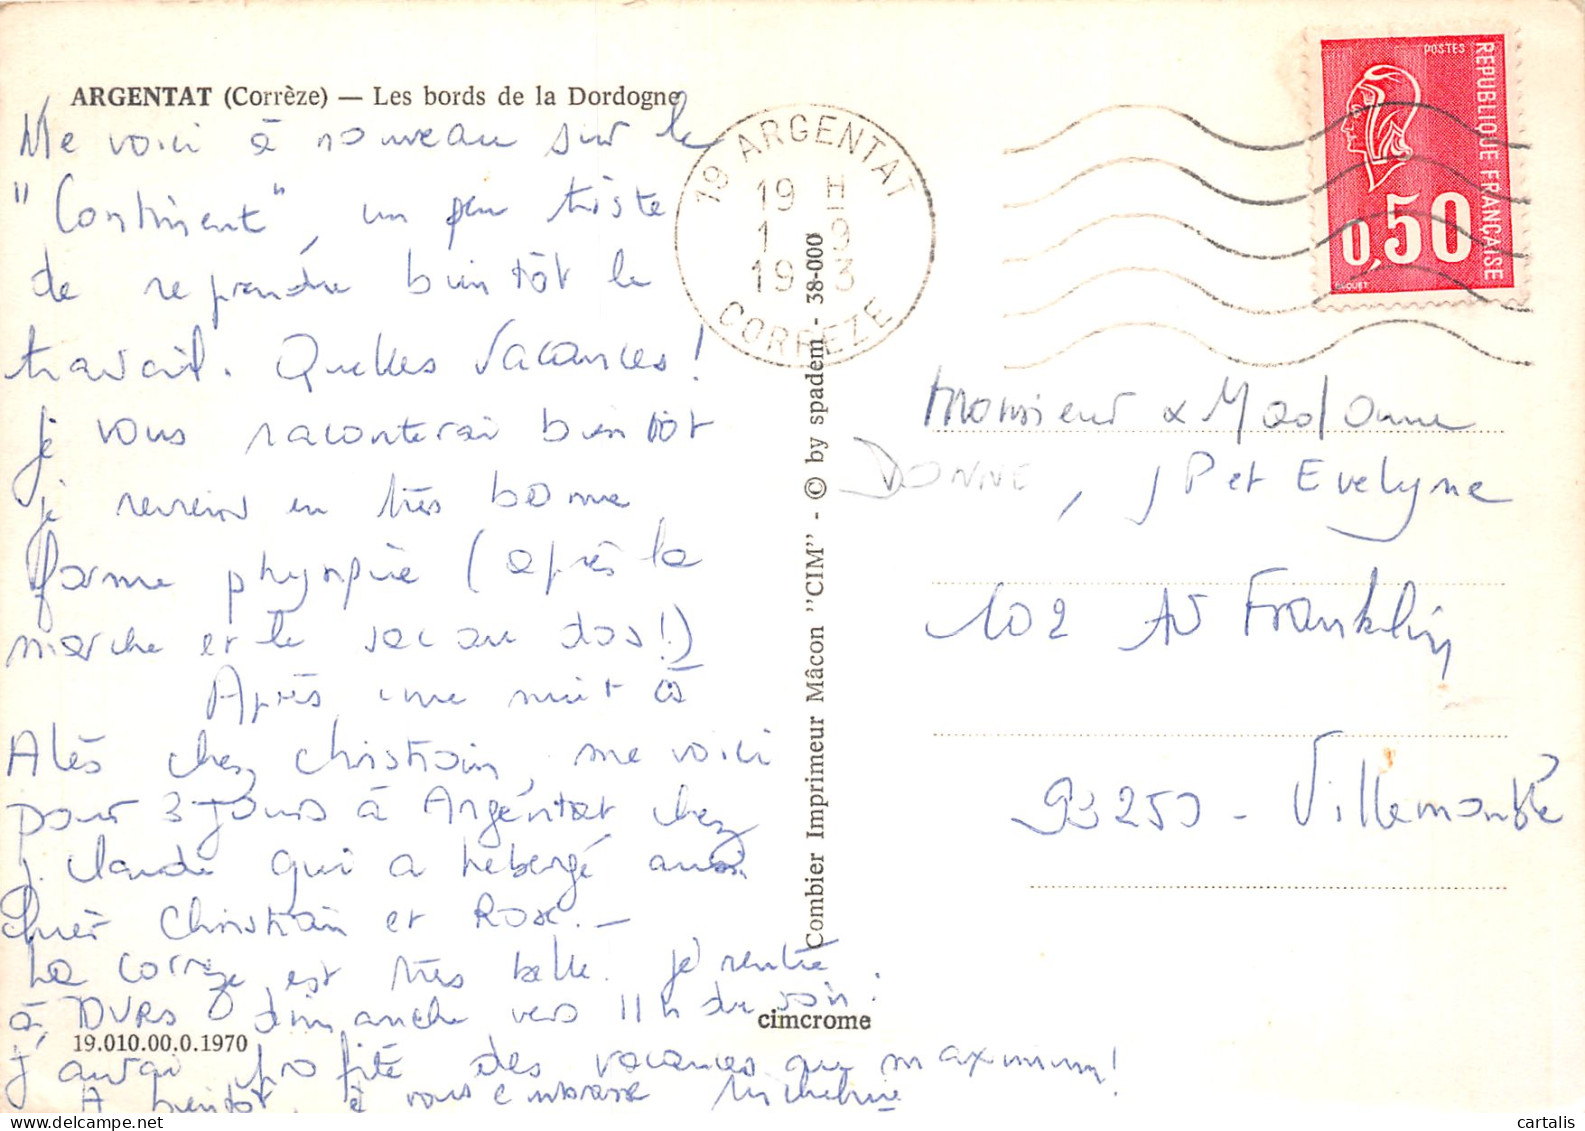 ARGENTAT (Corrèze) — Les bords de la Dordogne
Me voici à nouveau sur le
"Continent", un peu triste
de reprendre bientôt le
travail. Quelles vacances!
je vous raconterai bientôt
je reviens en très bonne
forme physique (après la
marche et le sac au dos!)
Après une nuit à
Alès chez Christian, me voici
pour 3 jours à Argentat chez
J. Claude qui a hébergé aussi
hier Christian et Rose. —
La Corrèze est très belle. Je rentre
à dimanche vers 11 h du soir.
J'aurai profité des vacances au maximum!
A bientôt, je vous embrasse Micheline
19.010.00.0.1970
cimcrome
Combier Imprimeur Mâcon "CIM" - © by spadem - 38-000
19 ARGENTAT
19 H
1 9
19 3
CORREZE
POSTES
REPUBLIQUE FRANÇAISE
0,50
BEQUET
Monsieur & Madame
DONNE, JP et Evelyne
102 Av Franklin
93250 - Villemomble
cartalis